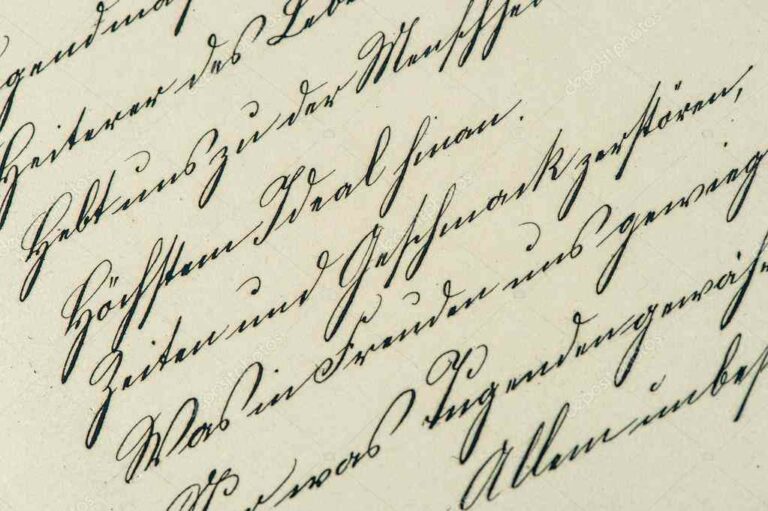 gendma
Heiterer des Lebe
Hebt uns zu der Menschhei
Höchstem Ideal hinan.
Zeiten und Geschmack zerstören,
Was in Freuden uns gewieg
was Tugenden gewäh
Allem unbes
depositphotos